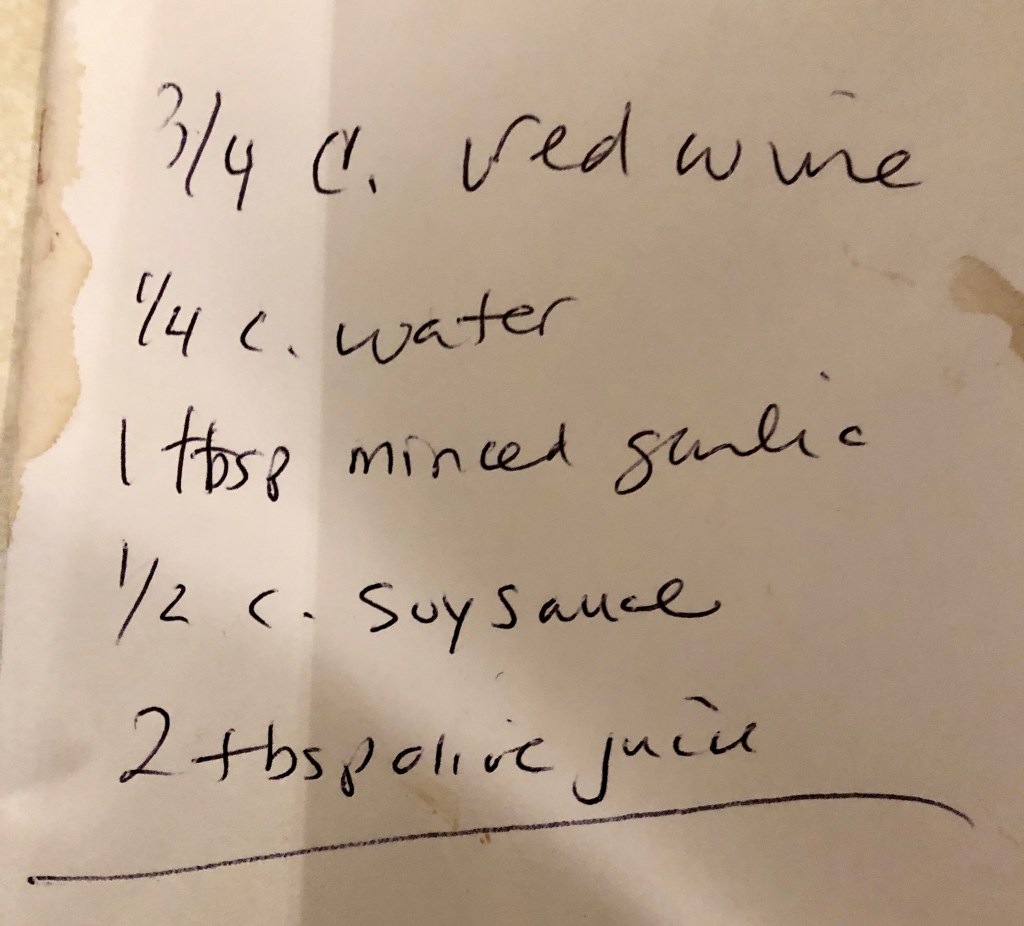 3/4 c. red wine
1/4 c. water
1 tbsp minced garlic
1/2 c. soy sauce
2 tbsp olive juice